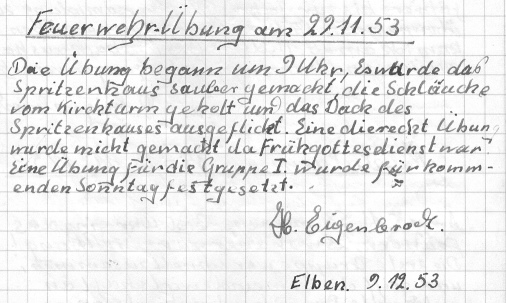 Feuerwehr-Übung am 29.11.53
Die Übung begann um 9 Uhr, Es wurde das
Spritzenhaus sauber gemacht, die Schläuche
vom Kirchturm geholt und das Dach des
Spritzenhauses ausgeflickt. Eine dierecht Übung
wurde nicht gemacht da Frühgottesdienst war
Eine Übung für die Gruppe I. wurde für komm-
enden Sonntag festgesetzt.
H. Eigenbrodt.
Elben. 9.12.53